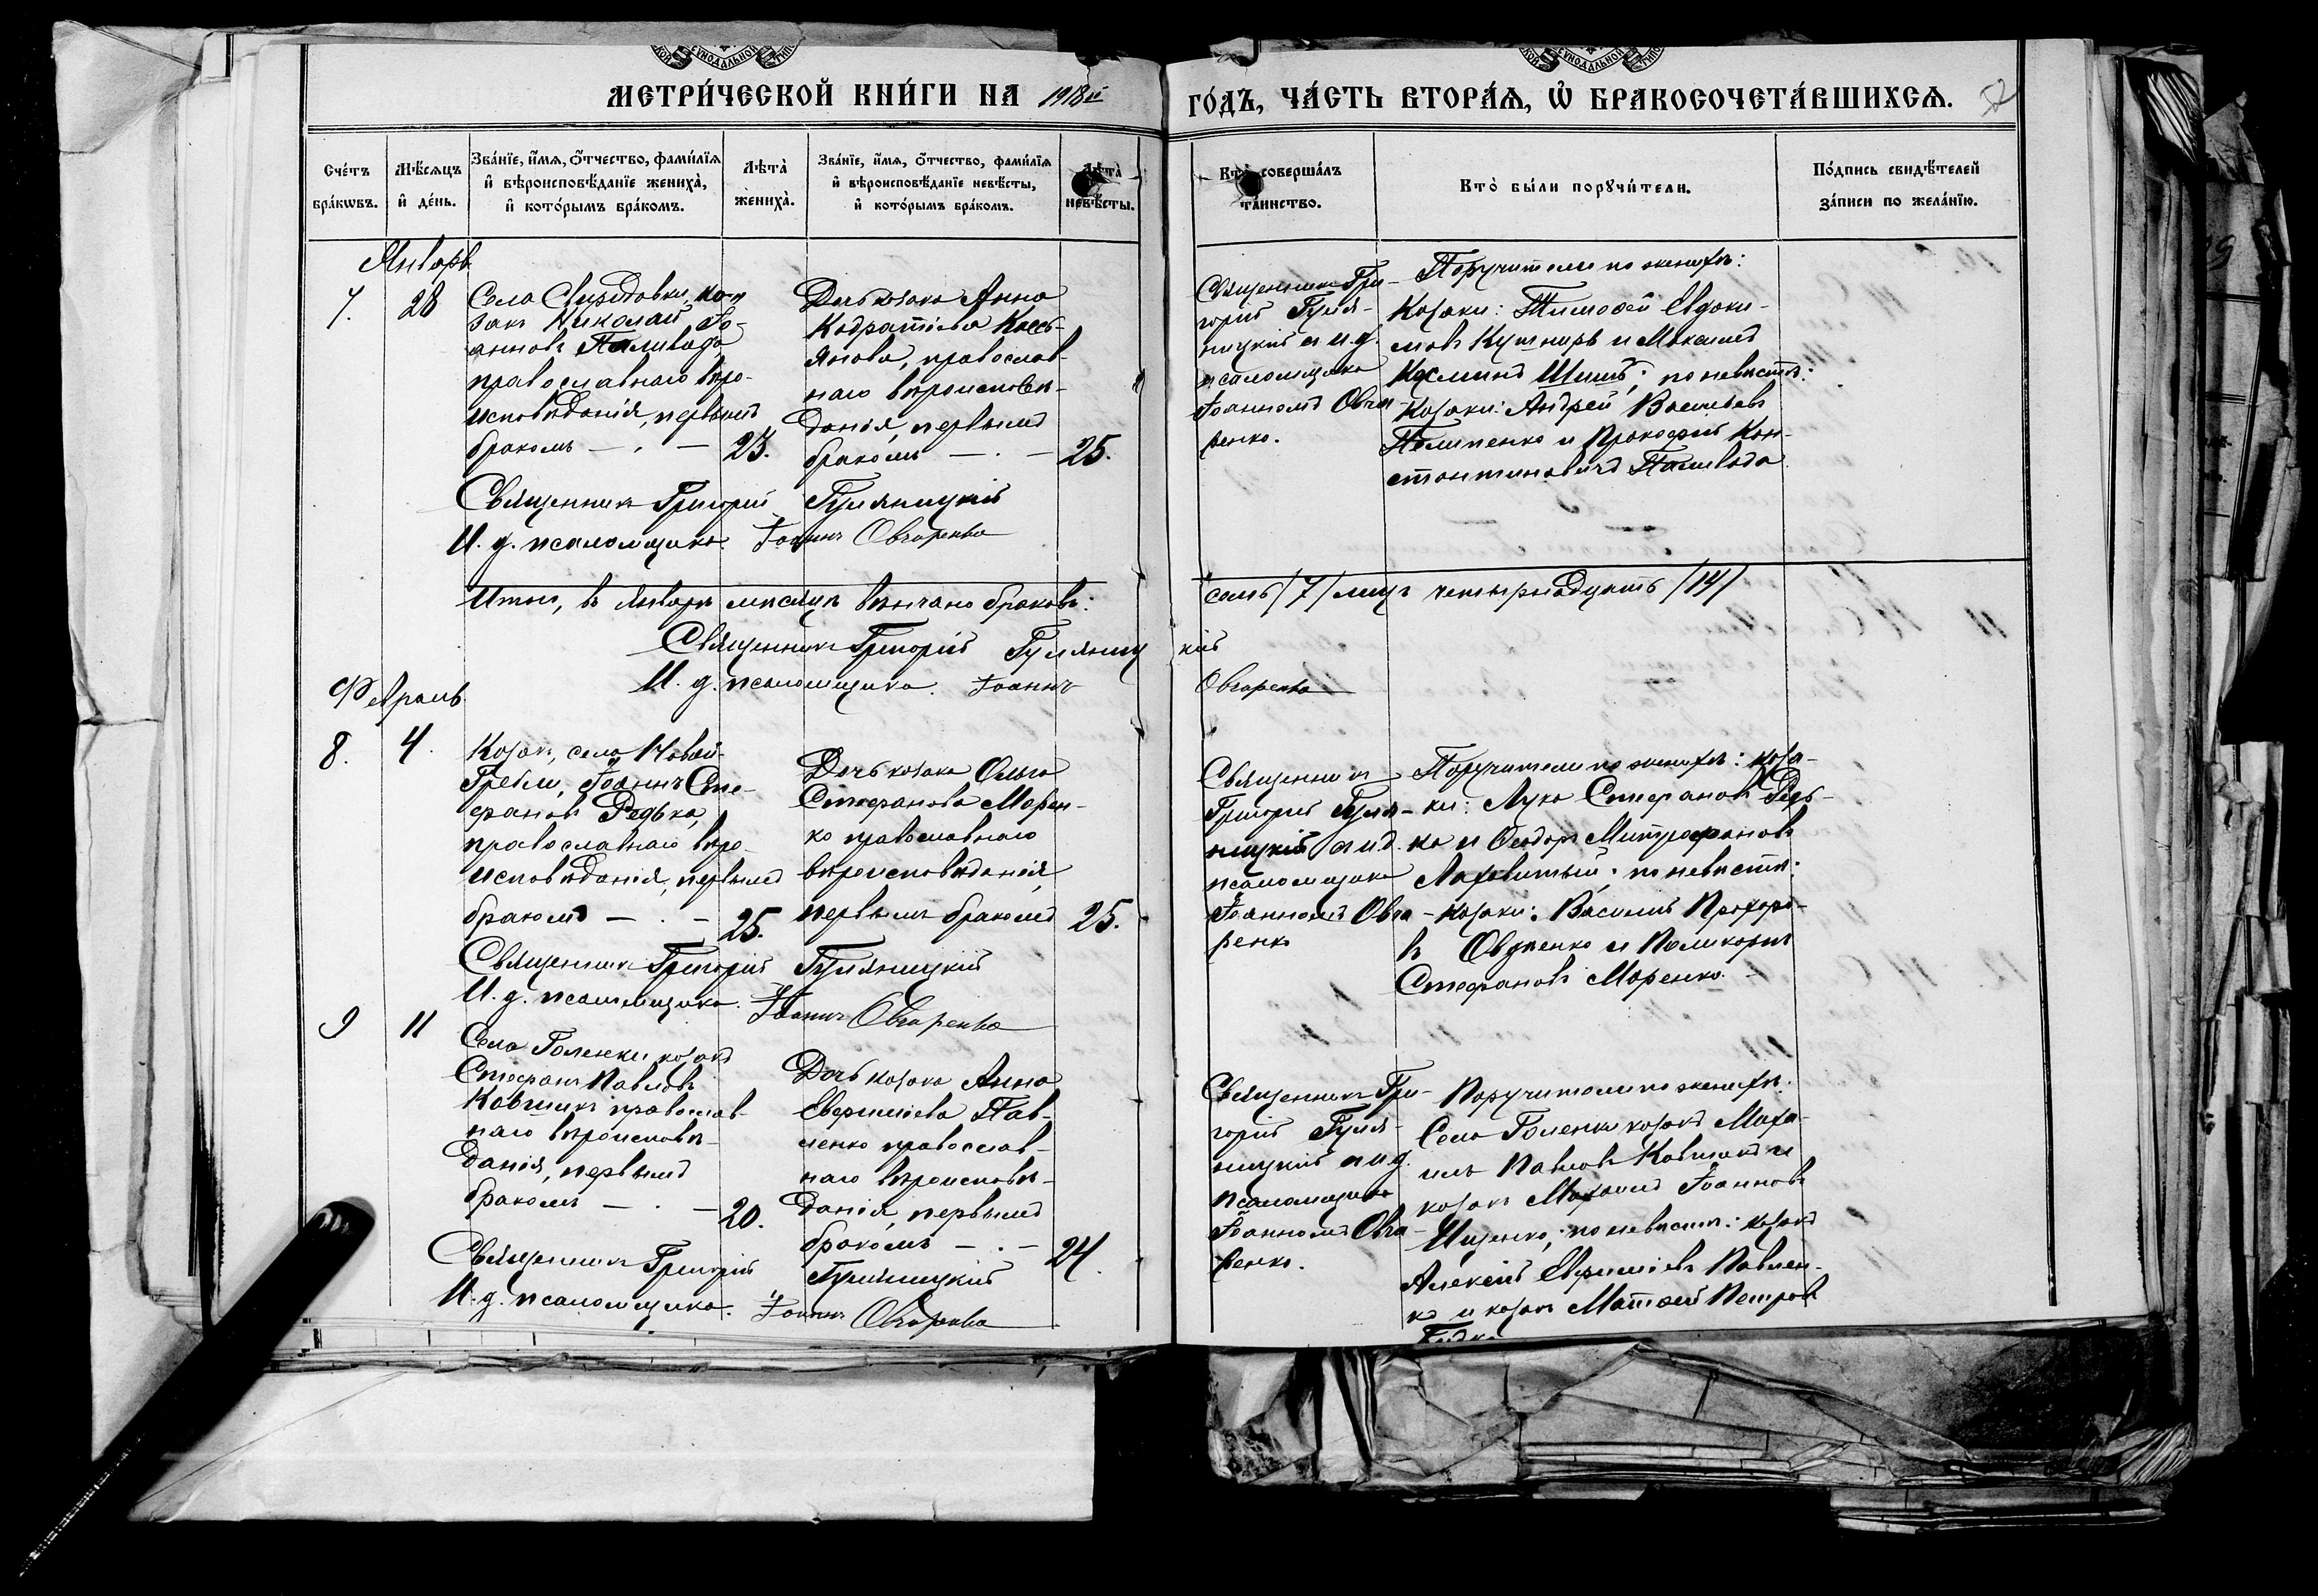 МЕТРИ́ЧЕСКОЙ КНИ́ГИ НА 1918й
ГО́ДЪ, ЧА́СТЬ ВТОРА́Я, Ѡ БРАКОСОЧЕТА́ВШИХСЯ.
Сче́тъ бра́кѡвъ.
Мѣ́сяцъ и де́нь.
Зва́нїе, и́мя, ѻ́тчество, фами́лїя
и вѣроисповѣ́данїе жениха̀,
и кото́рымъ бра́комъ.
Лѣта̀ жениха̀.
Зва́нїе, и́мя, ѻ́тчество, фами́лїя
и вѣроисповѣ́данїе невѣ́сты,
и кото́рымъ бра́комъ.
Лѣта̀ невѣ́сты.
Кто̀ соверша́лъ
та́инство.
Кто̀ бы́ли порꙋчи́тели.
По́дпись свидѣ́телей
за́писи по жела́нїю.
Январь
7.
28
Села Свиридовки, ко-
закъ Николай Іо-
анновъ Паливода
православнаго вѣро-
исповѣданія, первымъ
бракомъ — . —
23.
Дочь козака Анна
Кодратіева Касс-
янова, православ-
наго вѣроисповѣ-
данія, первымъ
бракомъ — . —
25.
Священникъ Гри-
горій Гуля-
ницкій и и.д.
псаломщика
Іоанномъ Овча-
ренко.
Поручители по женихѣ:
Козаки: Тимофей Евдоки-
мовъ Кушниръ и Максимъ
Косминъ Шишъ; по невѣстѣ:
Козаки: Андрей Васильевъ
Пилипенко и Прокофій Кон-
стантиновичъ Паливода
Священникъ Григорій Гуляницкій
И. д. псаломщика Іоаннъ Овчаренко
Итого, въ Январѣ мѣсяцѣ вѣнчано браковъ:
семь /7/ лицъ четырнадцать /14/
Священникъ Григорій Гуляниц
кій
И. д. псаломщика. Іоаннъ
Овчаренко
Февраль
8.
4.
Козакъ, села Новой-
Гребли, Іоаннъ Сте-
фановъ Редька,
православнаго вѣро-
исповѣданія, первымъ
бракомъ — . —
25.
Дочь козака Ольга
Стефанова Марен-
ко православнаго
вѣроисповѣданія,
первымъ бракомъ
25.
Священникъ
Григорій Гуля-
ницкій и и.д.
псаломщика
Іоанномъ Овча-
ренко
Поручители по женихѣ: коза-
ки: Лука Стефановъ Редь-
ка и Феодоръ Митрофановъ
Лахвитый; по невѣстѣ:
козаки: Василій Прохоро-
въ Овдіенко и Поликарпъ
Стефановъ Маренко.
Священникъ Григорій Гуляницкій
И. д. псаломщика. Іоаннъ Овчаренко
9
11
Села Голенки козакъ
Стефанъ Павловъ
Ковшикъ православ-
наго вѣроисповѣ-
данія, первымъ
бракомъ — . —
20.
Дочь козака Анна
Евфиміева Пав-
ленко православ-
наго вѣроисповѣ-
данія, первымъ
бракомъ — . —
24.
Священникъ Гри-
горій Гуля-
ницкій и и.д.
псаломщика
Іоанномъ Овча-
ренко.
Поручители по женихѣ:
Села Голенки козакъ Миха-
илъ Павловъ Ковшикъ и
козакъ Михаилъ Іоанновъ
Ищенко; по невѣстѣ: козакъ
Алексій Евфиміевъ Павлен-
ко и козакъ Матфей Петровъ
Священникъ Григорій Гуляницкій
И. д. псаломщика. Іоаннъ Овчаренко